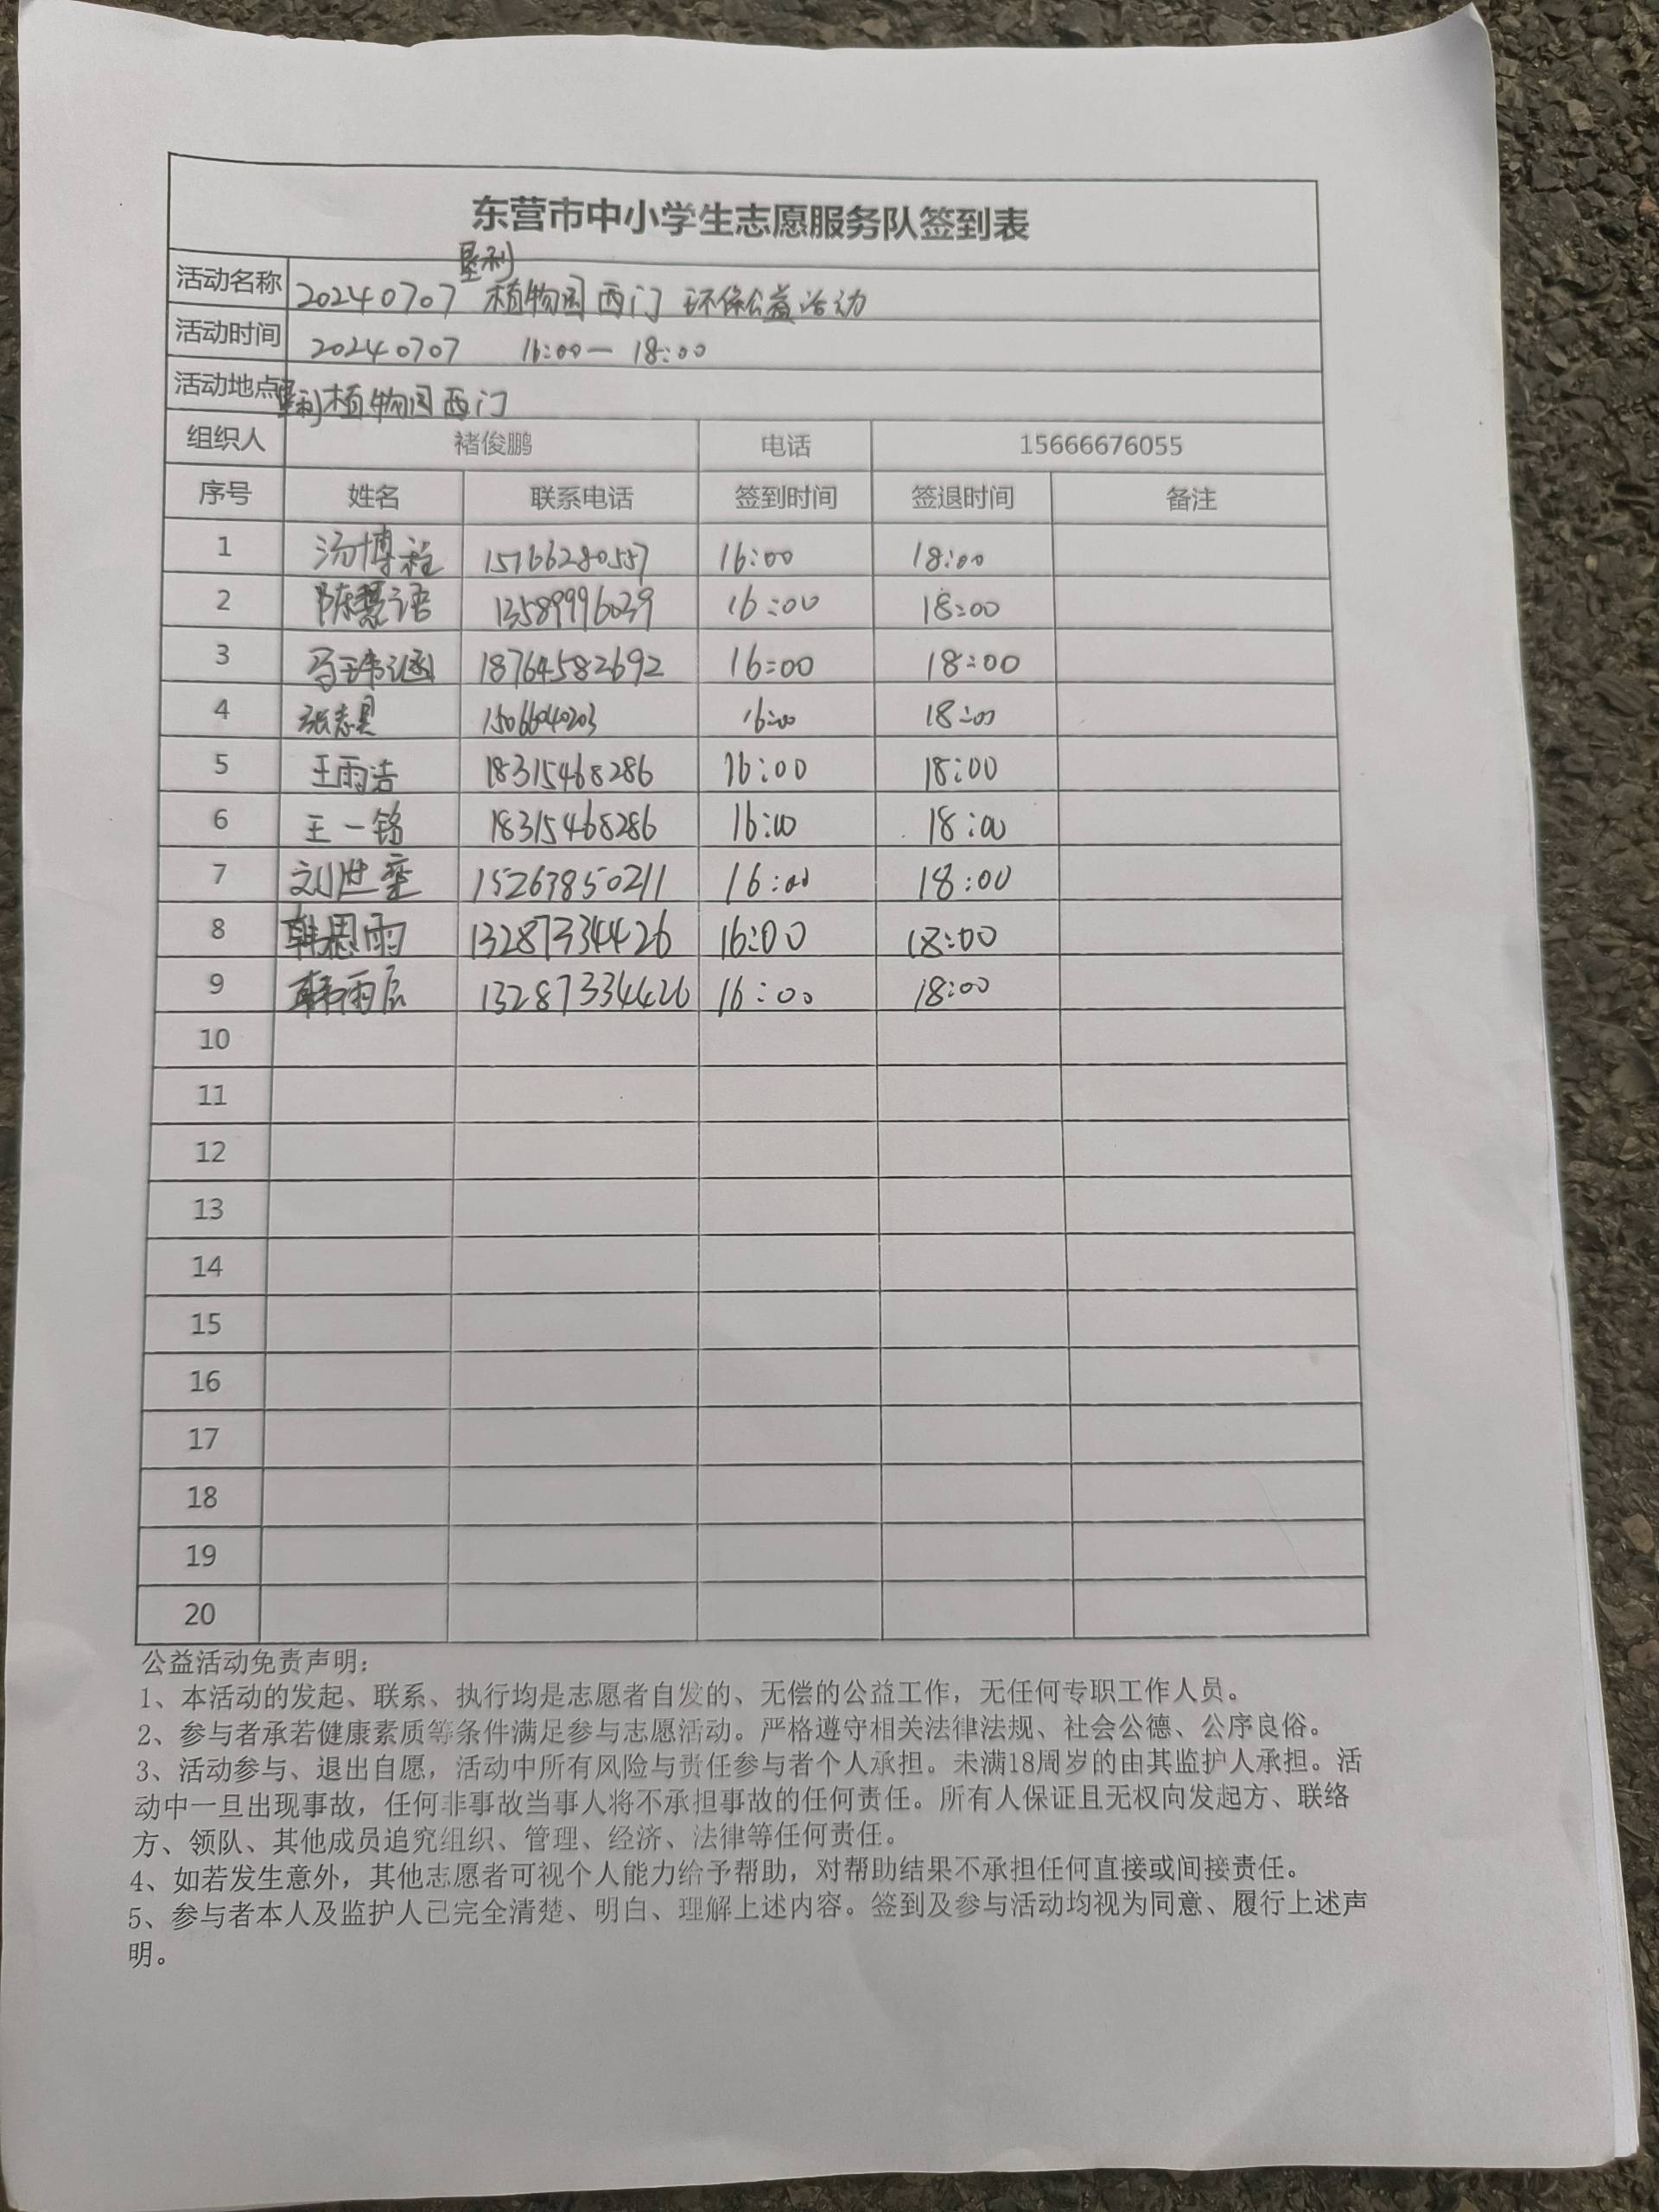 东营市中小学生志愿服务队签到表
垦利
活动名称 20240707 植物园西门 环保公益活动
活动时间 20240707 16:00— 18:00
活动地点 垦利植物园西门
组织人 褚俊鹏 电话 15666676055
序号 姓名 联系电话 签到时间 签退时间 备注
1 汤博程 15766280557 16:00 18:00
2 陈慧语 13589996039 16:00 18:00
3 18764582692 16:00 18:00
4 张志昊 15066040203 16:00 18:00
5 王雨浩 18315468286 16:00 18:00
6 王一铭 18315468286 16:00 18:00
7 刘世奕 15263850211 16:00 18:00
8 韩思雨 13287334426 16:00 18:00
9 韩雨辰 13287334426 16:00 18:00
10
11
12
13
14
15
16
17
18
19
20
公益活动免责声明：
1、本活动的发起、联系、执行均是志愿者自发的、无偿的公益工作，无任何专职工作人员。
2、参与者承若健康素质等条件满足参与志愿活动。严格遵守相关法律法规、社会公德、公序良俗。
3、活动参与、退出自愿，活动中所有风险与责任参与者个人承担。未满18周岁的由其监护人承担。活
动中一旦出现事故，任何非事故当事人将不承担事故的任何责任。所有人保证且无权向发起方、联络
方、领队、其他成员追究组织、管理、经济、法律等任何责任。
4、如若发生意外，其他志愿者可视个人能力给予帮助，对帮助结果不承担任何直接或间接责任。
5、参与者本人及监护人已完全清楚、明白、理解上述内容。签到及参与活动均视为同意、履行上述声
明。